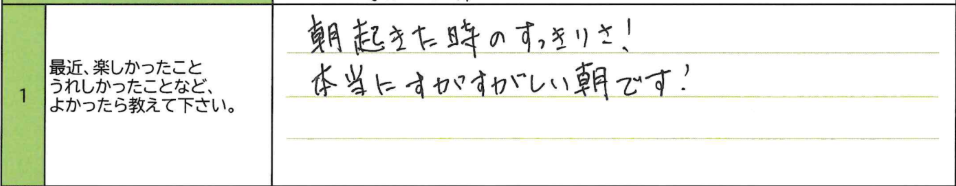 1
最近、楽しかったこと
うれしかったことなど、
よかったら教えて下さい。
朝起きた時のすっきりさ!
本当にすがすがしい朝です!